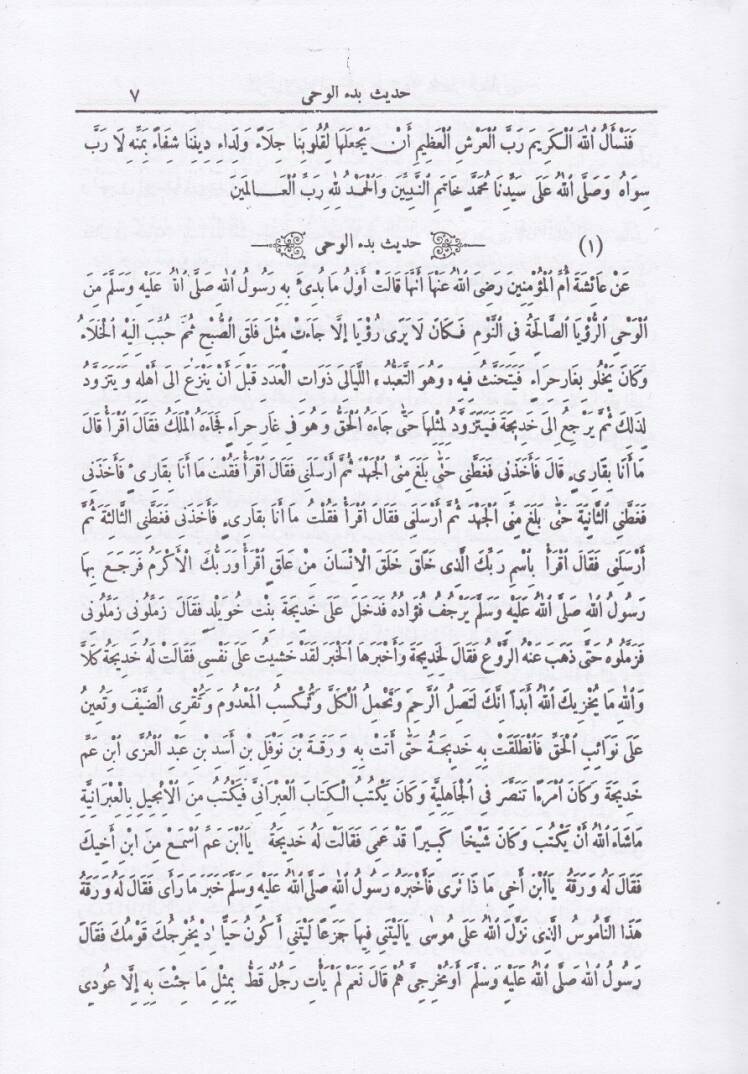 حديث بدء الوحى ٧
فَنَسْأَلُ اللهَ الْكَرِيمَ رَبَّ الْعَرْشِ الْعَظِيمِ أَنْ يَجْعَلَهَا لِقُلُوبِنَا جِلَاءً وَلِدَاءِ دِينِنَا شِفَاءً بِمَنِّهِ لَا رَبَّ
سِوَاهُ وَصَلَّى اللهُ عَلَى سَيِّدِنَا مُحَمَّدٍ خَاتَمِ النَّبِيِّينَ وَالْحَمْدُ لِلهِ رَبِّ الْعَـالَمِينَ
(١) حديث بدء الوحى
عَنْ عَائِشَةَ أُمِّ الْمُؤْمِنِينَ رَضِىَ اللهُ عَنْهَا أَنَّهَا قَالَتْ أَوَّلُ مَا بُدِئَ بِهِ رَسُولُ اللهِ صَلَّى اللهُ عَلَيْهِ وَسَلَّمَ مِنَ
الْوَحْىِ الرُّؤْيَا الصَّالِحَةُ فِى النَّوْمِ فَكَانَ لَا يَرَى رُؤْيَا إِلَّا جَاءَتْ مِثْلَ فَلَقِ الصُّبْحِ ثُمَّ حُبِّبَ إِلَيْهِ الْخَلَاءُ
وَكَانَ يَخْلُو بِغَارِ حِرَاءٍ فَيَتَحَنَّثُ فِيهِ ، وَهُوَ التَّعَبُّدُ ، اللَّيَالِىَ ذَوَاتِ الْعَدَدِ قَبْلَ أَنْ يَنْزِعَ الى أَهْلِهِ وَيَتَزَوَّدُ
لِذَلِكَ ثُمَّ يَرْجِعُ الى خَدِيجَةَ فَيَتَزَوَّدُ لِمِثْلِهَا حَتَّى جَاءَهُ الْحَقُّ وَهُوَ فِى غَارِ حِرَاءٍ فَجَاءَهُ الْمَلَكُ فَقَالَ اقْرَأْ قَالَ
مَا أَنَا بِقَارِىءٍ قَالَ فَأَخَذَنِى فَغَطَّنِى حَتَّى بَلَغَ مِنِّى الْجَهْدَ ثُمَّ أَرْسَلَنِى فَقَالَ اقْرَأْ فَقُلْتُ مَا أَنَا بِقَارِىءٍ فَأَخَذَنِى
فَغَطَّنِى الثَّانِيَةَ حَتَّى بَلَغَ مِنِّى الْجَهْدَ ثُمَّ أَرْسَلَنِى فَقَالَ اقْرَأْ فَقُلْتُ مَا أَنَا بِقَارِىءٍ فَأَخَذَنِى فَغَطَّنِى الثَّالِثَةَ ثُمَّ
أَرْسَلَنِى فَقَالَ اقْرَأْ بِاسْمِ رَبِّكَ الَّذِى خَلَقَ خَلَقَ الْانْسَانَ مِنْ عَلَقٍ اقْرَأْ وَرَبُّكَ الْأَكْرَمُ فَرَجَعَ بِهَا
رَسُولُ اللهِ صَلَّى اللهُ عَلَيْهِ وَسَلَّمَ يَرْجُفُ فُؤَادُهُ فَدَخَلَ عَلَى خَدِيجَةَ بِنْتِ خُوَيْلِدٍ فَقَالَ زَمِّلُونِى زَمِّلُونِى
فَزَمَّلُوهُ حَتَّى ذَهَبَ عَنْهُ الرَّوْعُ فَقَالَ لِخَدِيجَةَ وَأَخْبَرَهَا الْخَبَرَ لَقَدْ خَشِيتُ عَلَى نَفْسِى فَقَالَتْ لَهُ خَدِيجَةُ كَلَّا
وَاللهِ مَا يُخْزِيكَ اللهُ أَبَداً انَّكَ لَتَصِلُ الرَّحِمَ وَتَحْمِلُ الْكَلَّ وَتُكْسِبُ الْمَعْدُومَ وَتُقْرِى الضَّيْفَ وَتُعِينُ
عَلَى نَوَائِبِ الْحَقِّ فَانْطَلَقَتْ بِهِ خَدِيجَةُ حَتَّى أَتَتْ بِهِ وَرَقَةَ بْنَ نَوْفَلِ بْنِ أَسَدِ بْنِ عَبْدِ الْعُزَّى ابْنِ عَمِّ
خَدِيجَةَ وَكَانَ امْرَءًا تَنَصَّرَ فِى الْجَاهِلِيَّةِ وَكَانَ يَكْتُبُ الْكِتَابَ الْعِبْرَانِىَّ فَيَكْتُبُ مِنَ الْانْجِيلِ بِالْعِبْرَانِيَّةِ
مَاشَاءَ اللهُ أَنْ يَكْتُبَ وَكَانَ شَيْخًا كَبِيرًا قَدْ عَمِىَ فَقَالَتْ لَهُ خَدِيجَةُ يَاابْنَ عَمِّ اسْمَعْ مِنَ ابْنِ أَخِيكَ
فَقَالَ لَهُ وَرَقَةُ يَاابْنَ أَخِى مَا ذَا تَرَى فَأَخْبَرَهُ رَسُولُ اللهِ صَلَّى اللهُ عَلَيْهِ وَسَلَّمَ خَبَرَ مَا رَأَى فَقَالَ لَهُ وَرَقَةُ
هَذَا النَّامُوسُ الَّذِى نَزَّلَ اللهُ عَلَى مُوسَى يَالَيْتَنِى فِيهَا جَزَعًا لَيْتَنِى أَكُونُ حَيًّا اذْ يُخْرِجُكَ قَوْمُكَ فَقَالَ
رَسُولُ اللهِ صَلَّى اللهُ عَلَيْهِ وَسَلَّمَ أَوَمُخْرِجِىَّ هُمْ قَالَ نَعَمْ لَمْ يَأْتِ رَجُلٌ قَطُّ بِمِثْلِ مَا جِئْتَ بِهِ إِلَّا عُودِىَ